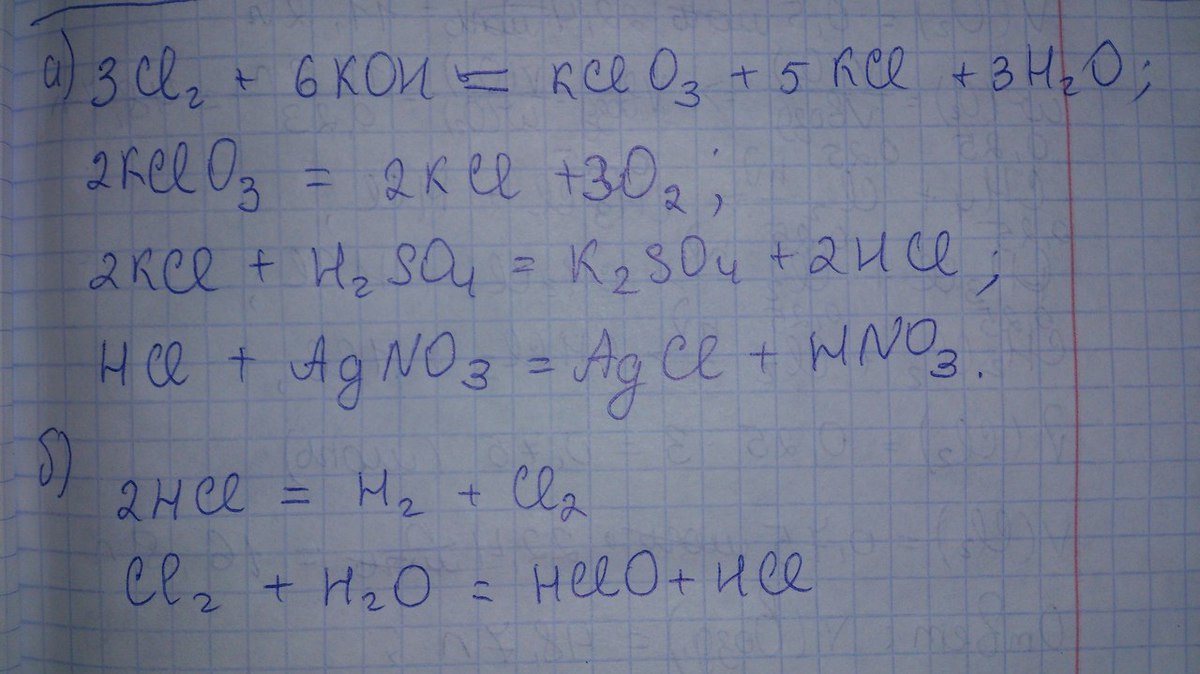 а) 3Cl₂ + 6KOH = KClO₃ + 5KCl + 3H₂O;
2KClO₃ = 2KCl + 3O₂;
2KCl + H₂SO₄ = K₂SO₄ + 2HCl;
HCl + AgNO₃ = AgCl + HNO₃.
б)
2HCl = H₂ + Cl₂
Cl₂ + H₂O = HClO + HCl